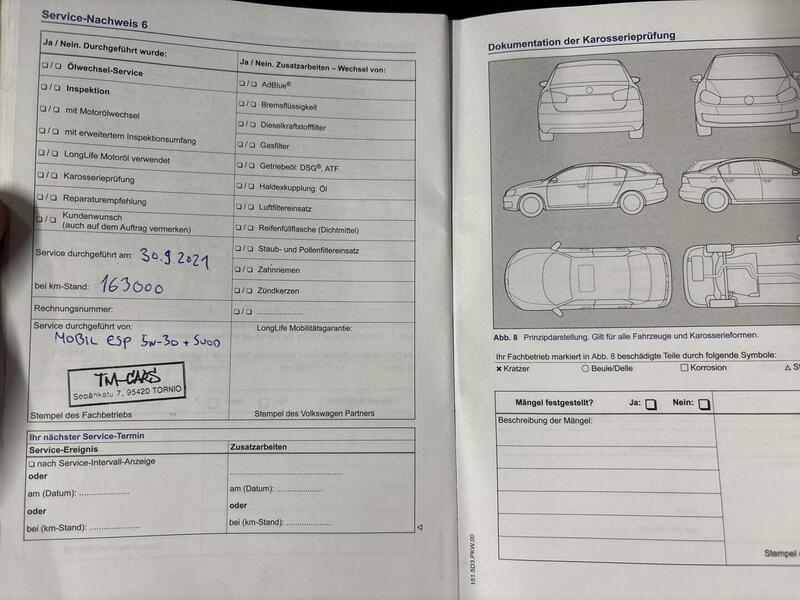 Service-Nachweis 6
Ja / Nein. Durchgeführt wurde:
❑ / ❑ Ölwechsel-Service
❑ / ❑ Inspektion
❑ / ❑ mit Motorölwechsel
❑ / ❑ mit erweitertem Inspektionsumfang
❑ / ❑ LongLife Motoröl verwendet
❑ / ❑ Karosserieprüfung
❑ / ❑ Reparaturempfehlung
❑ / ❑ Kundenwunsch
(auch auf dem Auftrag vermerken)
Service durchgeführt am: 30.9.2021
bei km-Stand: 163000
Rechnungsnummer:
Service durchgeführt von:
MOBIL ESP 5W-30 + SUOD
TM-CARS
Seponkatu 7, 95420 TORNIO
Stempel des Fachbetriebs
Ja / Nein. Zusatzarbeiten – Wechsel von:
❑ / ❑ AdBlue®
❑ / ❑ Bremsflüssigkeit
❑ / ❑ Dieselkraftstofffilter
❑ / ❑ Gasfilter
❑ / ❑ Getriebeöl: DSG®, ATF
❑ / ❑ Haldexkupplung: Öl
❑ / ❑ Luftfiltereinsatz
❑ / ❑ Reifenfüllflasche (Dichtmittel)
❑ / ❑ Staub- und Pollenfiltereinsatz
❑ / ❑ Zahnriemen
❑ / ❑ Zündkerzen
❑ / ❑ ......................
LongLife Mobilitätsgarantie:
Stempel des Volkswagen Partners
Ihr nächster Service-Termin
Service-Ereignis
❑ nach Service-Intervall-Anzeige
oder
am (Datum): ......................
oder
bei (km-Stand): ......................
Zusatzarbeiten
......................
am (Datum): ......................
oder
bei (km-Stand): ......................
Dokumentation der Karosserieprüfung
Abb. 8 Prinzipdarstellung. Gilt für alle Fahrzeuge und Karosserieformen.
Ihr Fachbetrieb markiert in Abb. 8 beschädigte Teile durch folgende Symbole:
× Kratzer ○ Beule/Delle □ Korrosion △
Mängel festgestellt? Ja: ❑ Nein: ❑
Beschreibung der Mängel:
Stempel
151.5D3.PKW.00